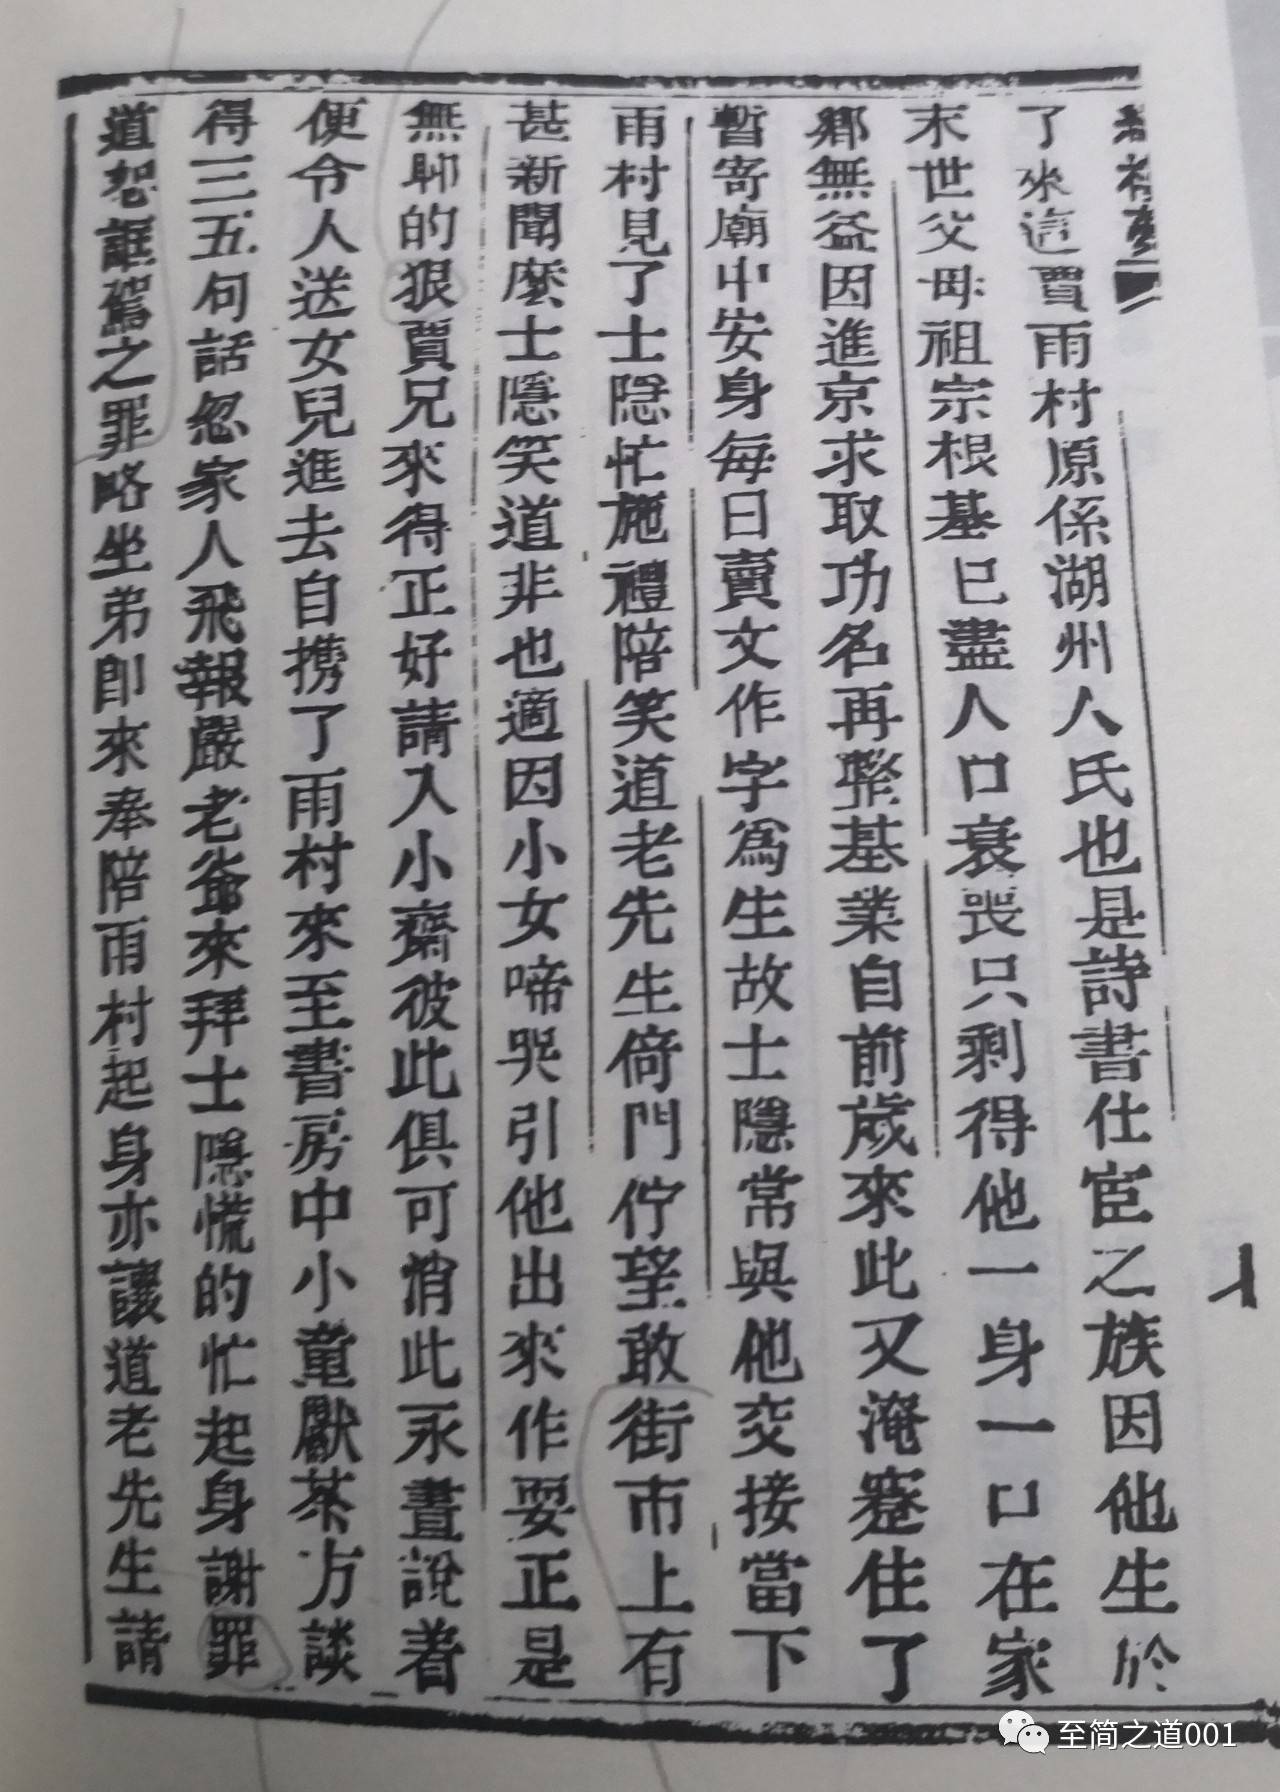 紅樓夢
了來這賈雨村原係湖州人氏也是詩書仕宦之族因他生於
末世父母祖宗根基已盡人口衰喪只剩得他一身一口在家
鄉無益因進京求取功名再整基業自前歲來此又淹蹇住了
暫寄廟中安身每日賣文作字為生故士隱常與他交接當下
雨村見了士隱忙施禮陪笑道老先生倚門佇望敢街市上有
甚新聞麼士隱笑道非也適因小女啼哭引他出來作耍正是
無聊的狠賈兄來得正好請入小齋彼此俱可消此永晝說着
便令人送女兒進去自携了雨村來至書房中小童獻茶方談
得三五句話忽家人飛報嚴老爺來拜士隱慌的忙起身謝罪
道恕誑駕之罪略坐弟即來奉陪雨村起身亦讓道老先生請
至简之道001